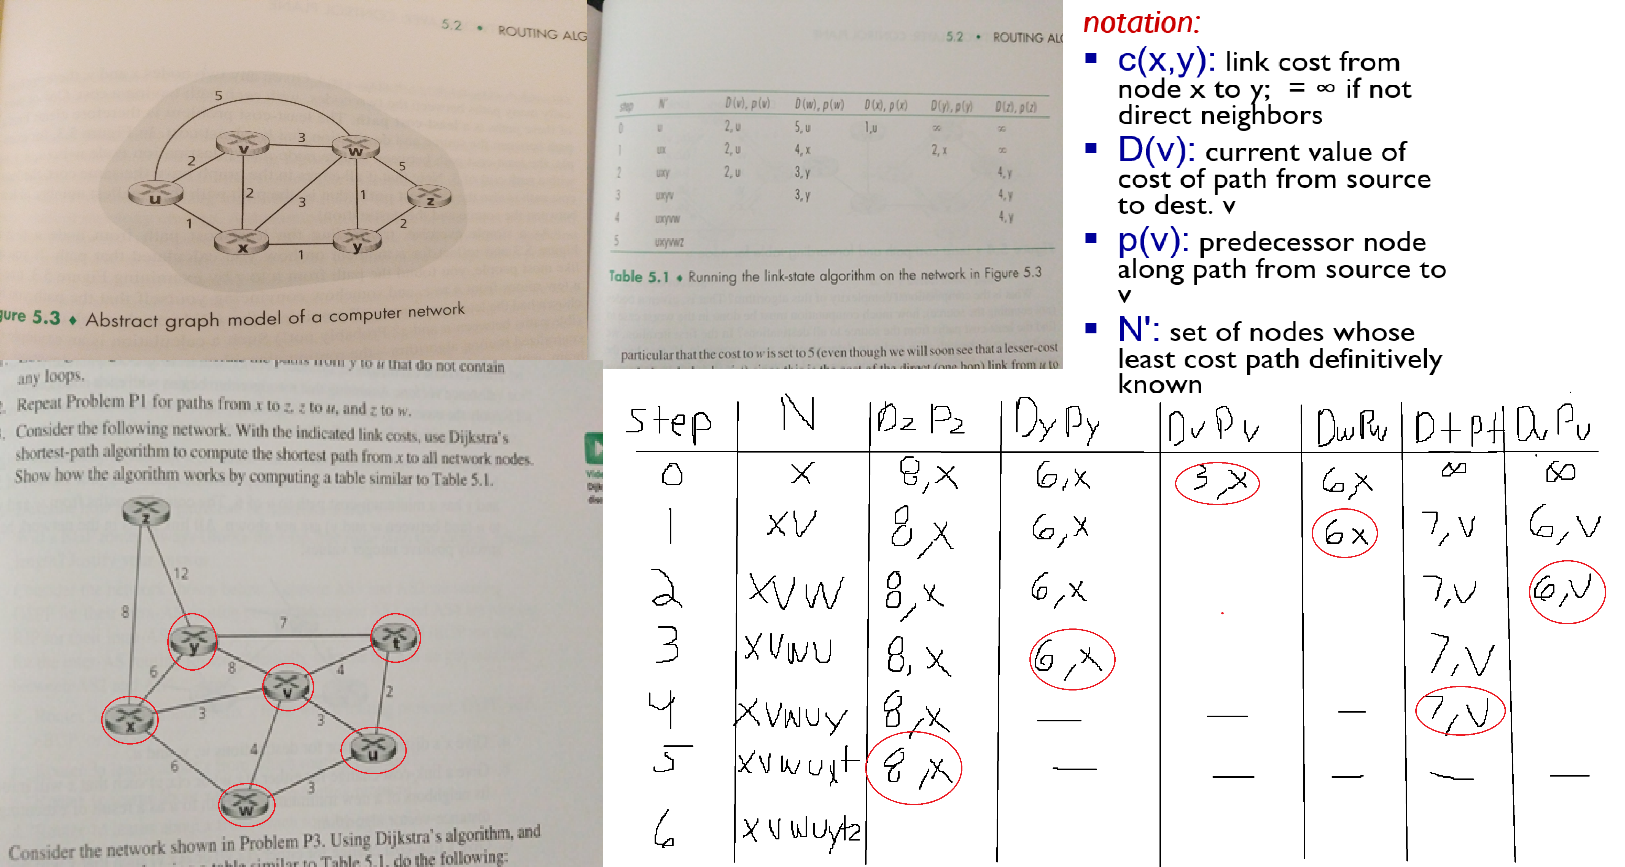 5.2 • ROUTING ALG
5
v
3
w
2
5
u
2
3
1
z
1
x
1
y
2
gure 5.3 ♦ Abstract graph model of a computer network
5.2 • ROUTING ALG
step N' D(v), p(v) D(w), p(w) D(x), p(x) D(y), p(y) D(z), p(z)
0 u 2, u 5, u 1,u ∞ ∞
1 ux 2, u 4, x 2, x ∞
2 uxy 2, u 3, y 4, y
3 uxyv 3, y 4, y
4 uxyvw 4, y
5 uxyvwz
Table 5.1 ♦ Running the link-state algorithm on the network in Figure 5.3
particular that the cost to w is set to 5 (even though we will soon see that a lesser-cost
notation:
▪ c(x,y): link cost from
node x to y; = ∞ if not
direct neighbors
▪ D(v): current value of
cost of path from source
to dest. v
▪ p(v): predecessor node
along path from source to
v
▪ N': set of nodes whose
least cost path definitively
known
y to u that do not contain
any loops.
Repeat Problem P1 for paths from x to z, z to u, and z to w.
Consider the following network. With the indicated link costs, use Dijkstra's
shortest-path algorithm to compute the shortest path from x to all network nodes.
Show how the algorithm works by computing a table similar to Table 5.1.
z
12
8
y
7
t
6
8
4
v
2
x
3
3
4
u
6
3
w
Consider the network shown in Problem P3. Using Dijkstra's algorithm, and
similar to Table 5.1, do the following:
Step N Dz Pz Dy Py Dv Pv Dw Pw Dt Pt Du Pu
0 x 8,x 6,x 3,x 6x ∞ ∞
1 xv 8,x 6,x 6x 7,v 6,v
2 xvw 8,x 6,x 7,v 6,v
3 xvwu 8,x 6,x 7,v
4 xvwuy 8,x — — — 7,v
5 xvwuyt 8,x — — — — —
6 xvwuytz